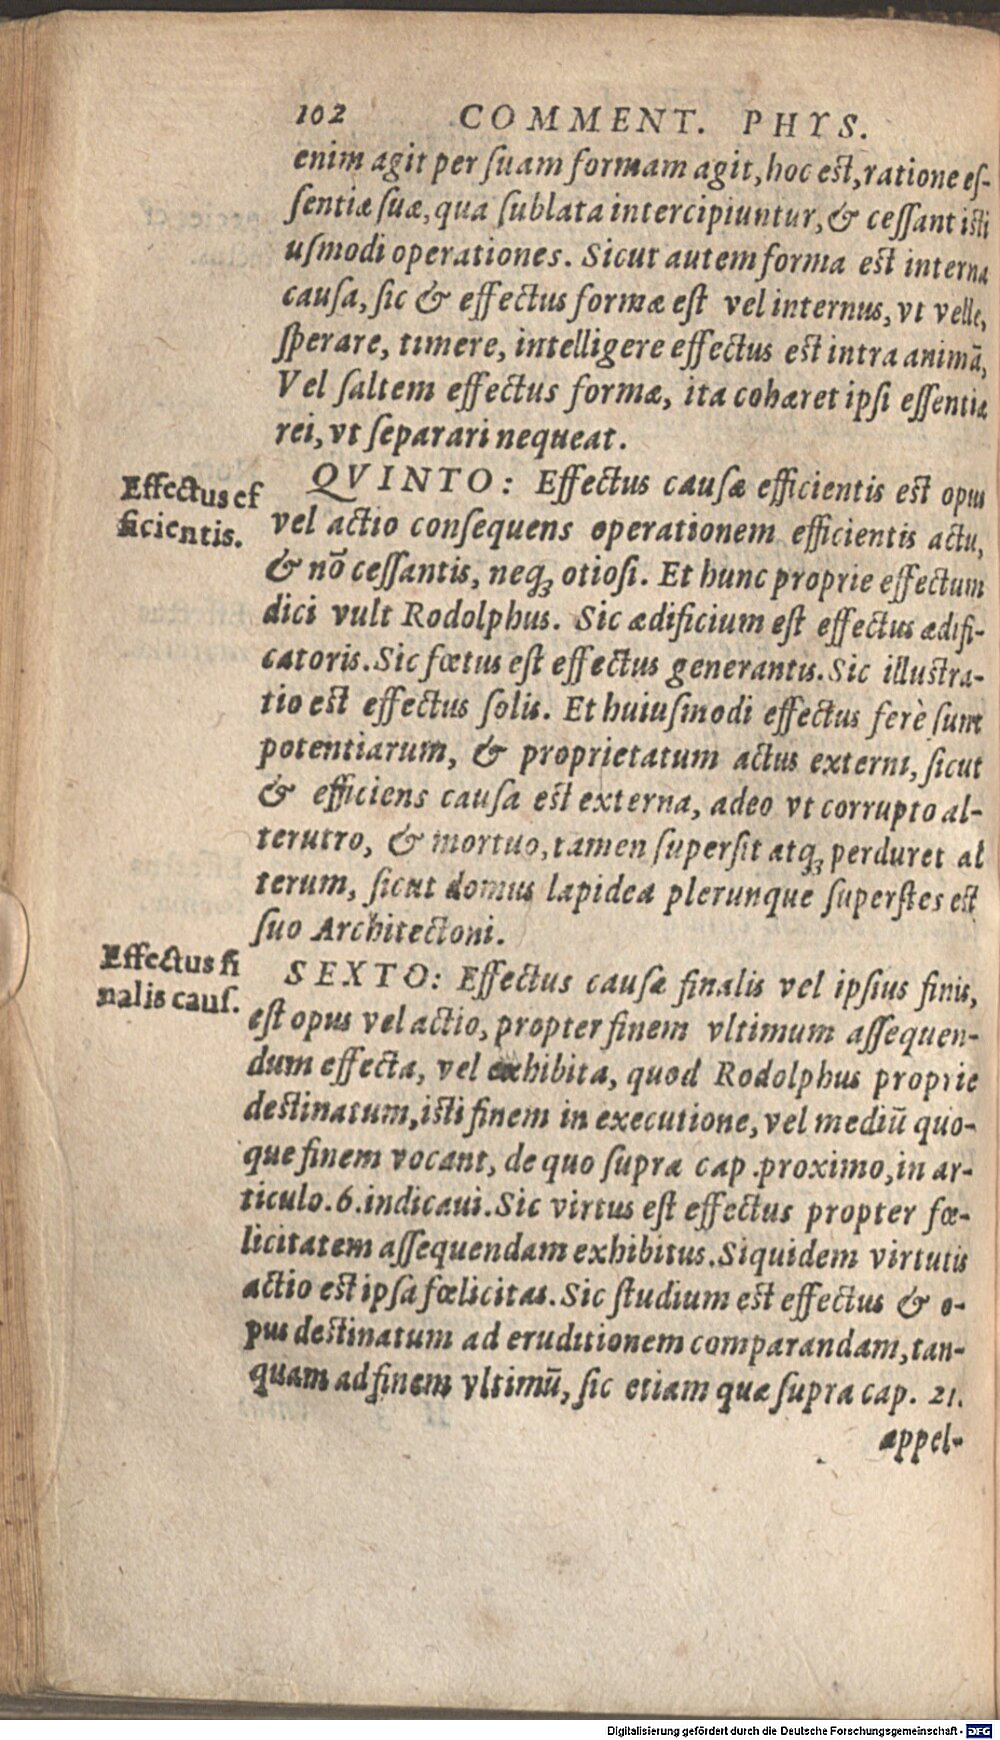 102 COMMENT. PHYS.
enim agit per ſuam formam agit, hoc eſt, ratione eſ-
ſentiæ ſuæ, qua ſublata intercipiuntur, & ceſſant iſti
uſmodi operationes. Sicut autem forma eſt interna
cauſa, ſic & effectus formæ eſt vel internus, vt velle,
ſperare, timere, intelligere effectus eſt intra animā,
Vel ſaltem effectus formæ, ita cohæret ipſi eſſentiæ
rei, vt ſeparari nequeat.
QVINTO: Effectus cauſæ efficientis eſt opus
Effectus ef
ficientis.
vel actio conſequens operationem efficientis actu,
& nō ceſſantis, neqꝫ otioſi. Et hunc proprie effectum
dici vult Rodolphus. Sic ædificium eſt effectus ædifi-
catoris. Sic fœtus eſt effectus generantis. Sic illuſtra-
tio eſt effectus ſolis. Et huiuſmodi effectus ferè ſunt
potentiarum, & proprietatum actus externi, ſicut
& efficiens cauſa eſt externa, adeo vt corrupto al-
terutro, & mortuo, tamen ſuperſit atqꝫ perduret al
terum, ſicut domus lapidea plerunque ſuperſtes eſt
ſuo Architectoni.
Effectus fi
nalis cauſ.
SEXTO: Effectus cauſæ finalis vel ipſius finis,
eſt opus vel actio, propter finem vltimum aſſequen-
dum effecta, vel exhibita, quod Rodolphus proprie
deſtinatum, iſti finem in executione, vel mediū quo-
que finem vocant, de quo ſupra cap. proximo, in ar-
ticulo. 6. indicaui. Sic virtus eſt effectus propter fœ-
licitatem aſſequendam exhibitus. Siquidem virtutis
actio eſt ipſa fœlicitas. Sic ſtudium eſt effectus & o-
pus deſtinatum ad eruditionem comparandam, tan-
quam ad finem vltimū, ſic etiam quæ ſupra cap. 21.
appel-
Digitalisierung gefördert durch die Deutsche Forschungsgemeinschaft - DFG